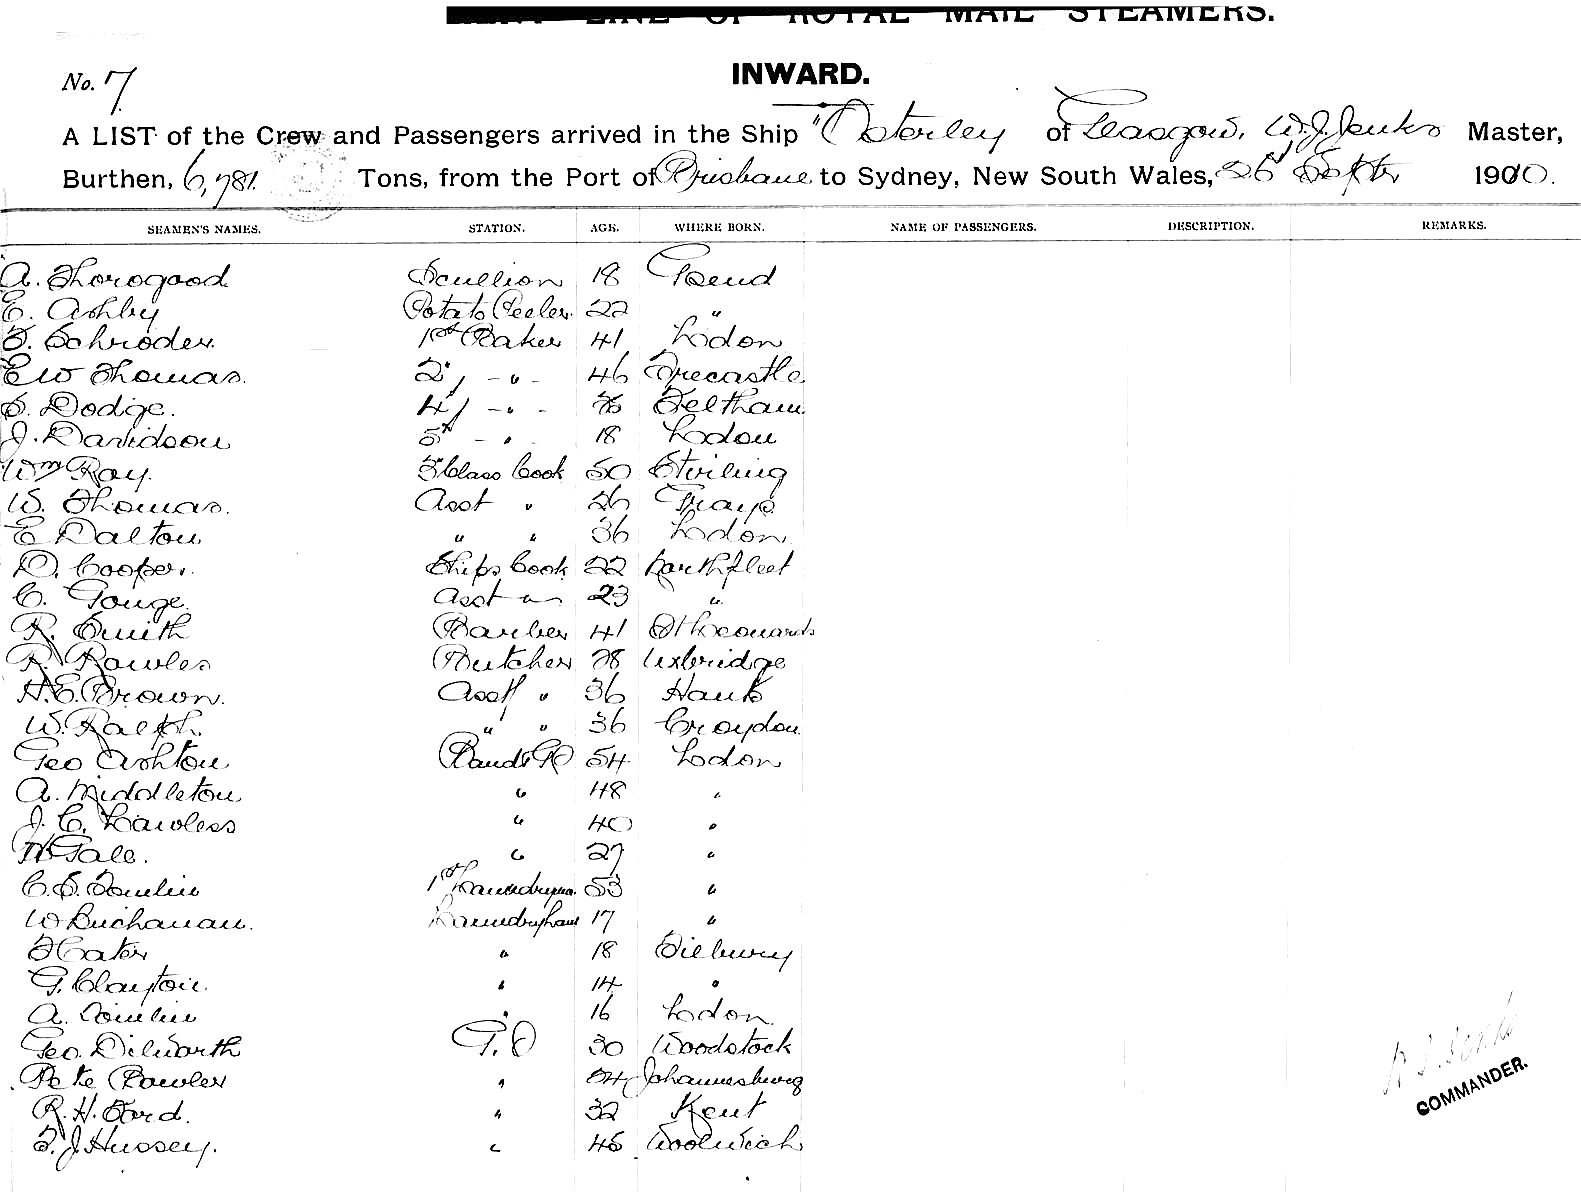 LINE OF ROYAL MAIL STEAMERS.
INWARD.
No. 7
A LIST of the Crew and Passengers arrived in the Ship "Osterley of Glasgow, W.J. Jenks Master,
Burthen, 6,781. Tons, from the Port of Brisbane to Sydney, New South Wales, 25 Septr 1910.
SEAMEN'S NAMES. STATION. AGE. WHERE BORN. NAME OF PASSENGERS. DESCRIPTION. REMARKS.
A. Thorogood Scullion 18 Gsend
E. Ashby Potato Peeler 22 "
F. Schroder. 1st Baker 41 Lodon
E W Thomas. 2, - " - 46 Trecastle
S. Dodge. 4, - " - Feltham
J. Davidson 5th - " - 18 Lodon
Wm Ray. 3 Class Cook 50 Stirling
W. Thomas. Asst " 26 Grays
E Dalton " " 36 Lodon
D. Cooper. Ships Cook 22 Northfleet
C. Gouge. Asst " 23 "
R. Smith Barber 41 St Leonards
R. Rowles Butcher 28 Uxbridge
H.E. Brown. Asst " 36 Hants
W. Ralph. " " 36 Croydon
Geo Ashton Bands GS 54 Lodon
A. Middleton " 48 "
J. C. Lawless " 40 "
H Gale. " 27 "
C.S. Tomlin 1st Laundryman. 53 "
W Buchanan. Laundryman 17 "
F Cater " 18 Tilbury
G. Clayton. " 14 "
A. Tomlin " 16 Lodon
Geo. Dilworth G.S 30 Woodstock
Pete Bowler " 24 Johannesburg
R. H. Ford. " 32 Kent
F. J. Hussey. " 45 Woolwich
COMMANDER.